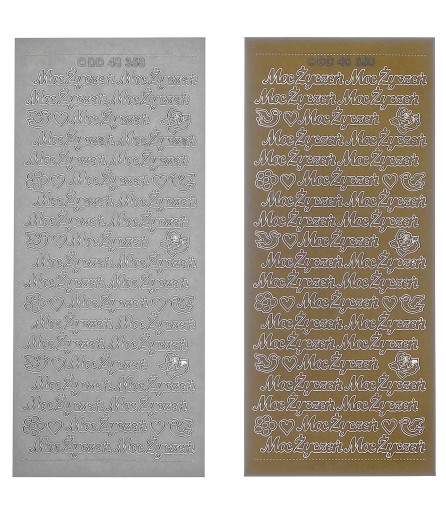 Moc Życzeń Moc Życzeń
Moc Życzeń Moc Życzeń
Moc Życzeń
Moc Życzeń Moc Życzeń
Moc Życzeń Moc Życzeń
Moc Życzeń
Moc Życzeń Moc Życzeń
Moc Życzeń Moc Życzeń
Moc Życzeń
Moc Życzeń Moc Życzeń
Moc Życzeń Moc Życzeń
Moc Życzeń
Moc Życzeń Moc Życzeń
Moc Życzeń Moc Życzeń
Moc Życzeń
Moc Życzeń Moc Życzeń
Moc Życzeń Moc Życzeń
Moc Życzeń
Moc Życzeń Moc Życzeń
Moc Życzeń Moc Życzeń
Moc Życzeń Moc Życzeń
Moc Życzeń
Moc Życzeń Moc Życzeń
Moc Życzeń Moc Życzeń
Moc Życzeń
Moc Życzeń Moc Życzeń
Moc Życzeń Moc Życzeń
Moc Życzeń
Moc Życzeń Moc Życzeń
Moc Życzeń Moc Życzeń
Moc Życzeń
Moc Życzeń Moc Życzeń
Moc Życzeń Moc Życzeń
Moc Życzeń
Moc Życzeń Moc Życzeń
Moc Życzeń Moc Życzeń
Moc Życzeń
Moc Życzeń Moc Życzeń